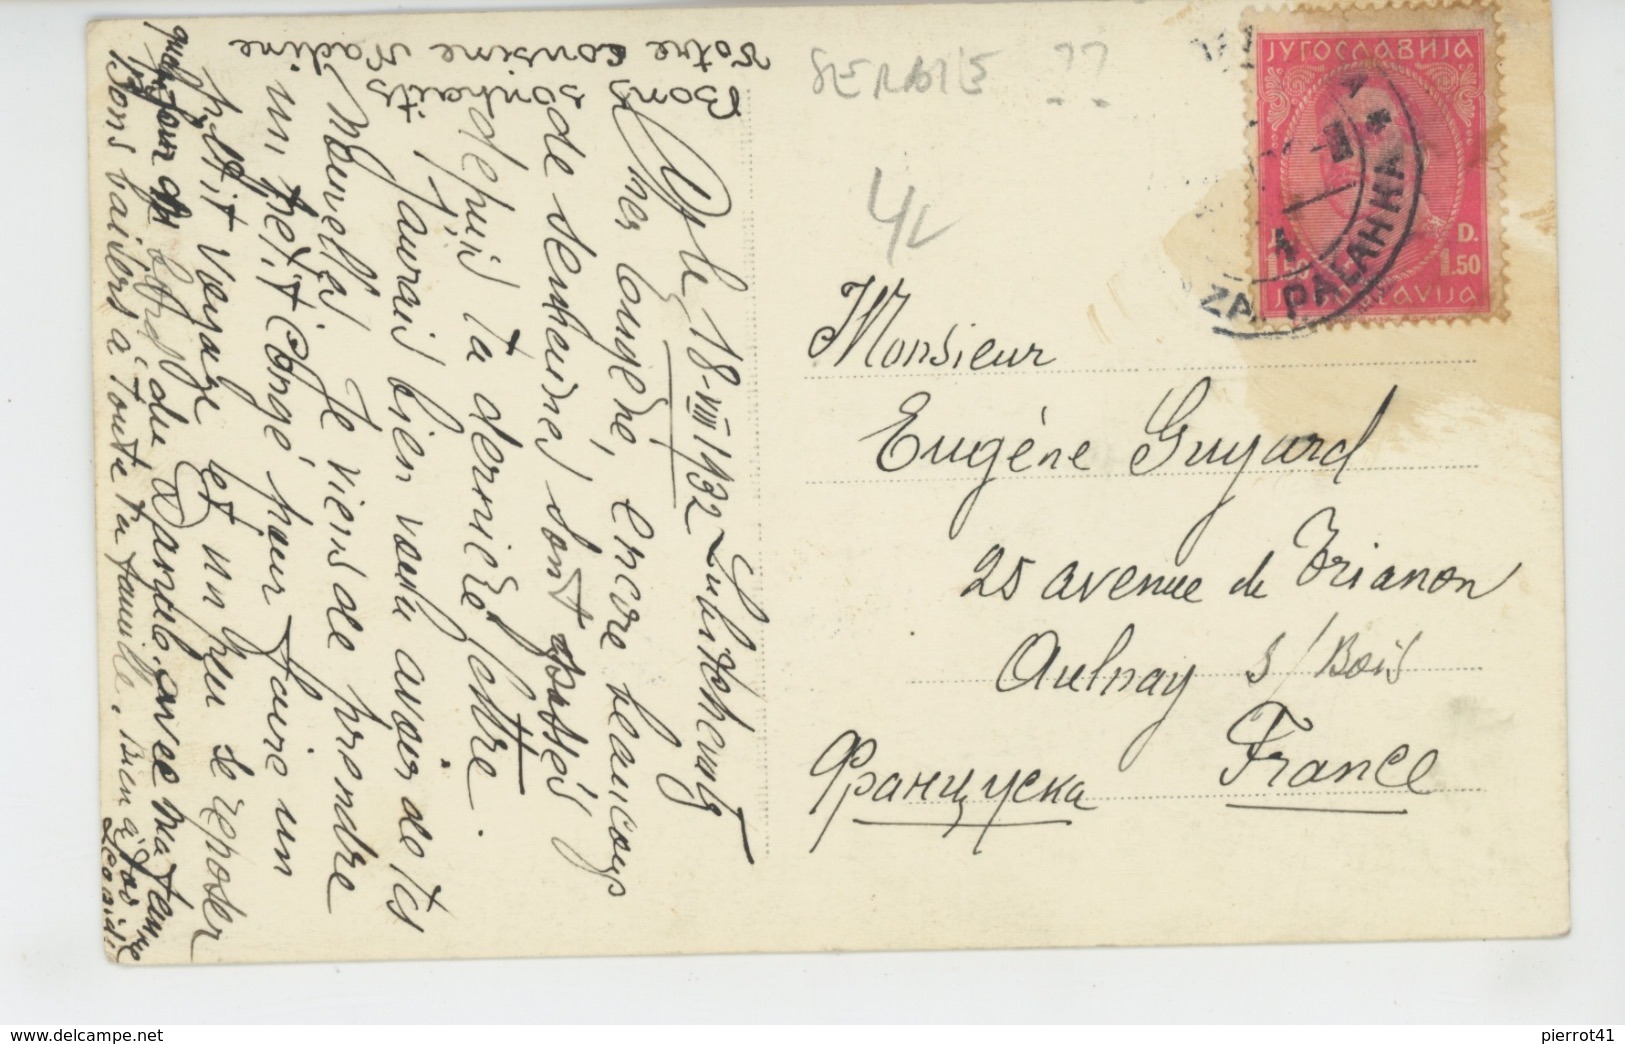 le 18-VIII 1932
Mes Eugène, encore beaucoup
de semaines sont passés
depuis ta dernière lettre.
J'aurais bien voulu avoir de tes
nouvelles. Je viens de prendre
un petit Congé pour faire un
petit voyage et un peu se reposer
du Danube avec ma femme
Bons baisers à toute ta famille. Bien à toi
Bons
souhaits
Votre Cousine Nadine
SERBIE ??
4L
ЈУГОСЛАВИЈА
D.
1.50
1.50
JUGOSLAVIJA
PALANKA
Monsieur
Eugène Guyard
25 avenue de Trianon
Aulnay s/Bois
Француска
France
www.delcampe.net
pierrot41